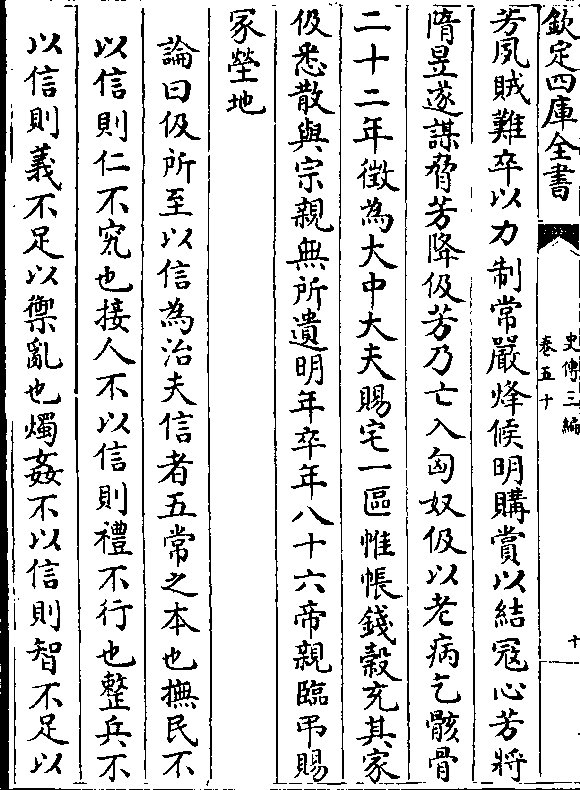 欽定四庫全書
史傳三編
卷五十
十
芳夙賊難卒以力制常嚴烽候明購賞以結寇心芳將
隋昱遂謀脅芳降伋芳乃亡入匈奴伋以老病乞骸骨
二十二年徵為大中大夫賜宅一區帷帳錢糓充其家
伋悉散與宗親無所遺明年卒年八十六帝親臨弔賜
冢塋地
論曰伋所至以信為治夫信者五常之本也撫民不
以信則仁不究也接人不以信則禮不行也整兵不
以信則義不足以禦亂也燭姦不以信則智不足以